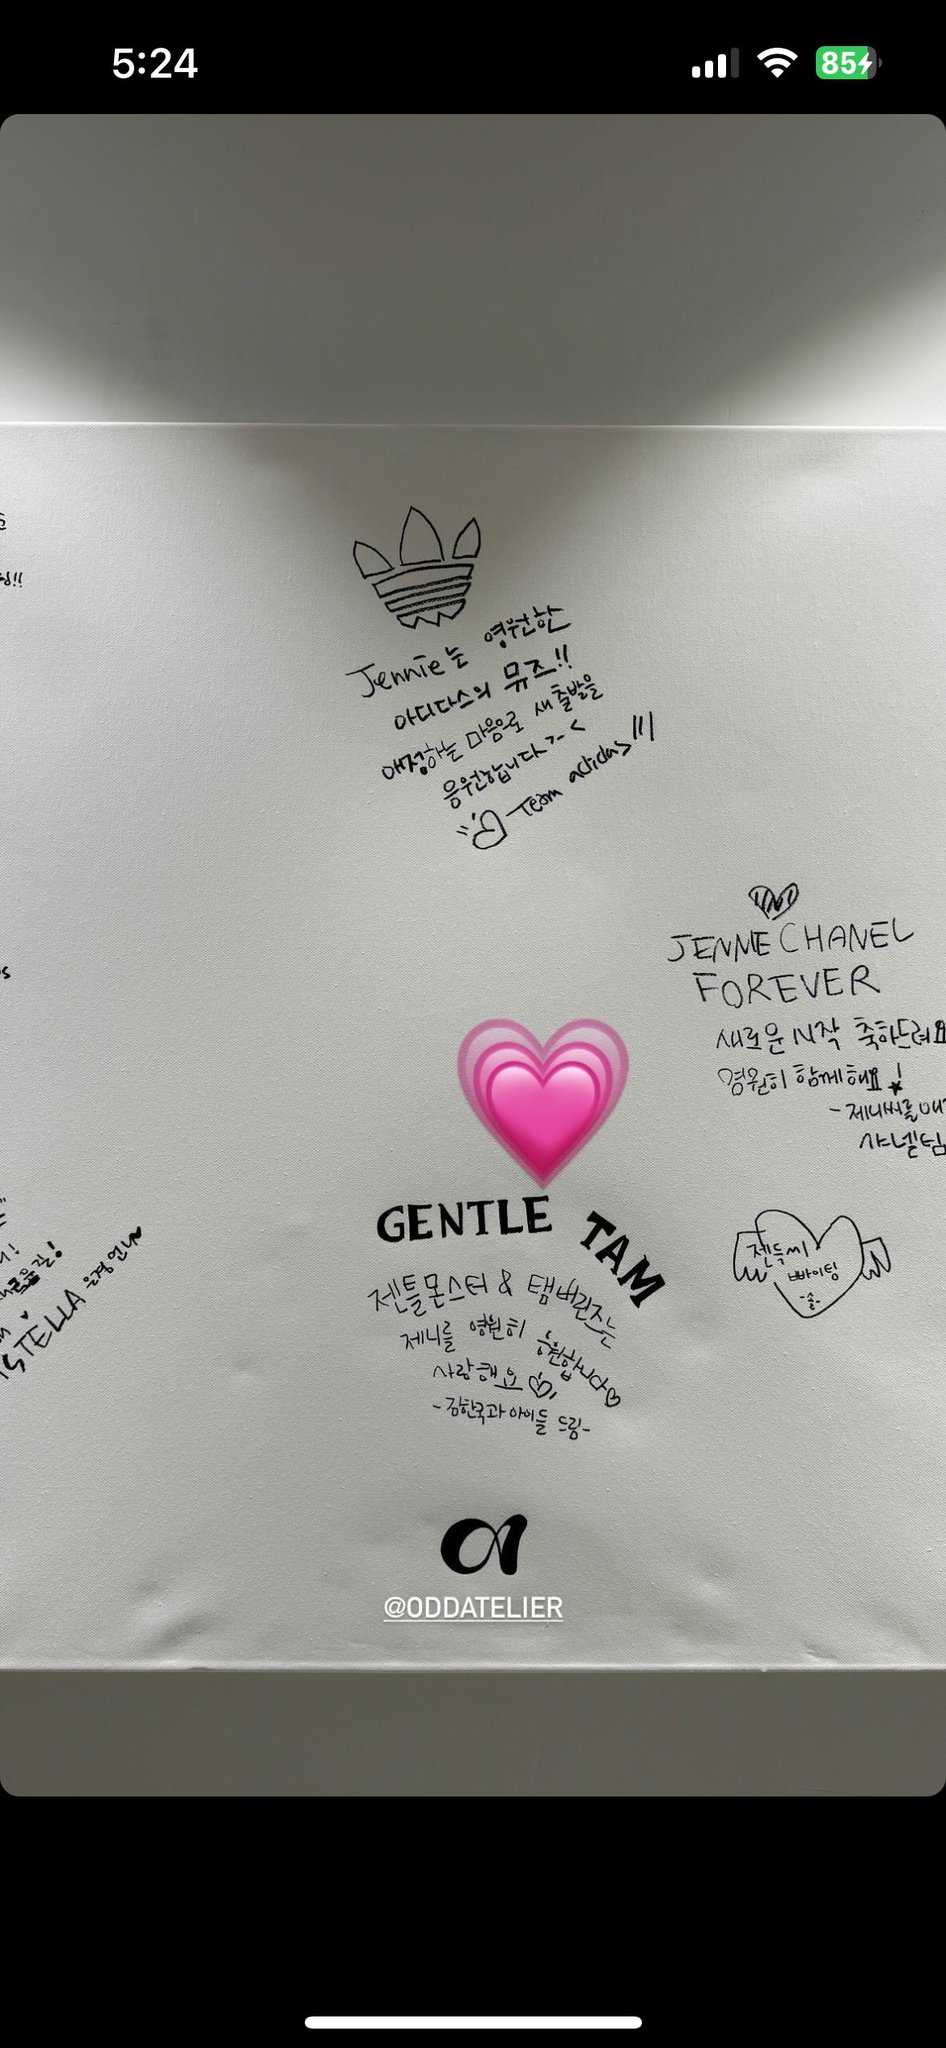 5:24
85
Jennie는 영원한
아디다스의 뮤즈!!
애정하는 마음으로 새 출발을
응원합니다 >_<
Team adidas
JENNIE CHANEL
FOREVER
새로운 시작 축하드려요
영원히 함께해요!
- 제니씨를
샤넬팀
GENTLE TAM
젠틀몬스터 & 탬버린즈는
제니를 영원히 응원합니다
사랑해요
- 김한국과 아이들 드림 -
젠득씨
빠이팅
-솔-
STELLA 은경언니
@ODDATELIER